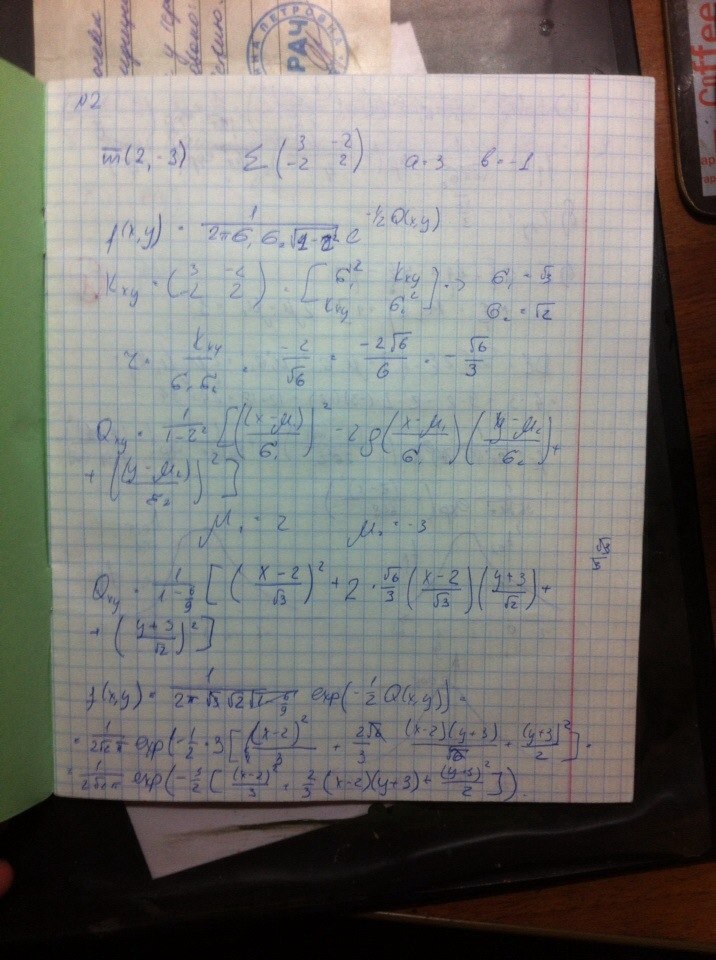 №2
m̅(2,-3)   Σ(3 -2 / -2 2)   a=3   b=-1
f(x,y) = 1/(2πσ₁σ₂√(1-r²)) e^(-1/2 Q(x,y))
Kxy = (3 -2 / -2 2) = [σ₁² Kxy / Kxy σ₂²] => σ₁ = √3
σ₂ = √2
r = Kxy/(σ₁σ₂) = -2/√6 = -2√6/6 = -√6/3
Qxy = 1/(1-r²) [((x-μ₁)/σ₁)² - 2ρ((x-μ₁)/σ₁)((y-μ₂)/σ₂) +
+ ((y-μ₂)/σ₂)²]
μ₁ = 2   μ₂ = -3
Qxy = 1/(1-6/9) [((x-2)/√3)² + 2·√6/3((x-2)/√3)((y+3)/√2) +
+ ((y+3)/√2)²]
f(x,y) = 1/(2π√3√2√(1-6/9)) exp(-1/2 Q(x,y)) =
= 1/(2√2π) exp(-1/2·3[(x-2)²/3 + 2√6/3 (x-2)(y+3)/√6 + (y+3)²/2] =
= 1/(2√2π) exp(-3/2[(x-2)²/3 + 2/3(x-2)(y+3) + (y+3)²/2]).
РАЧ
ПЕТРОВНА
Coffee